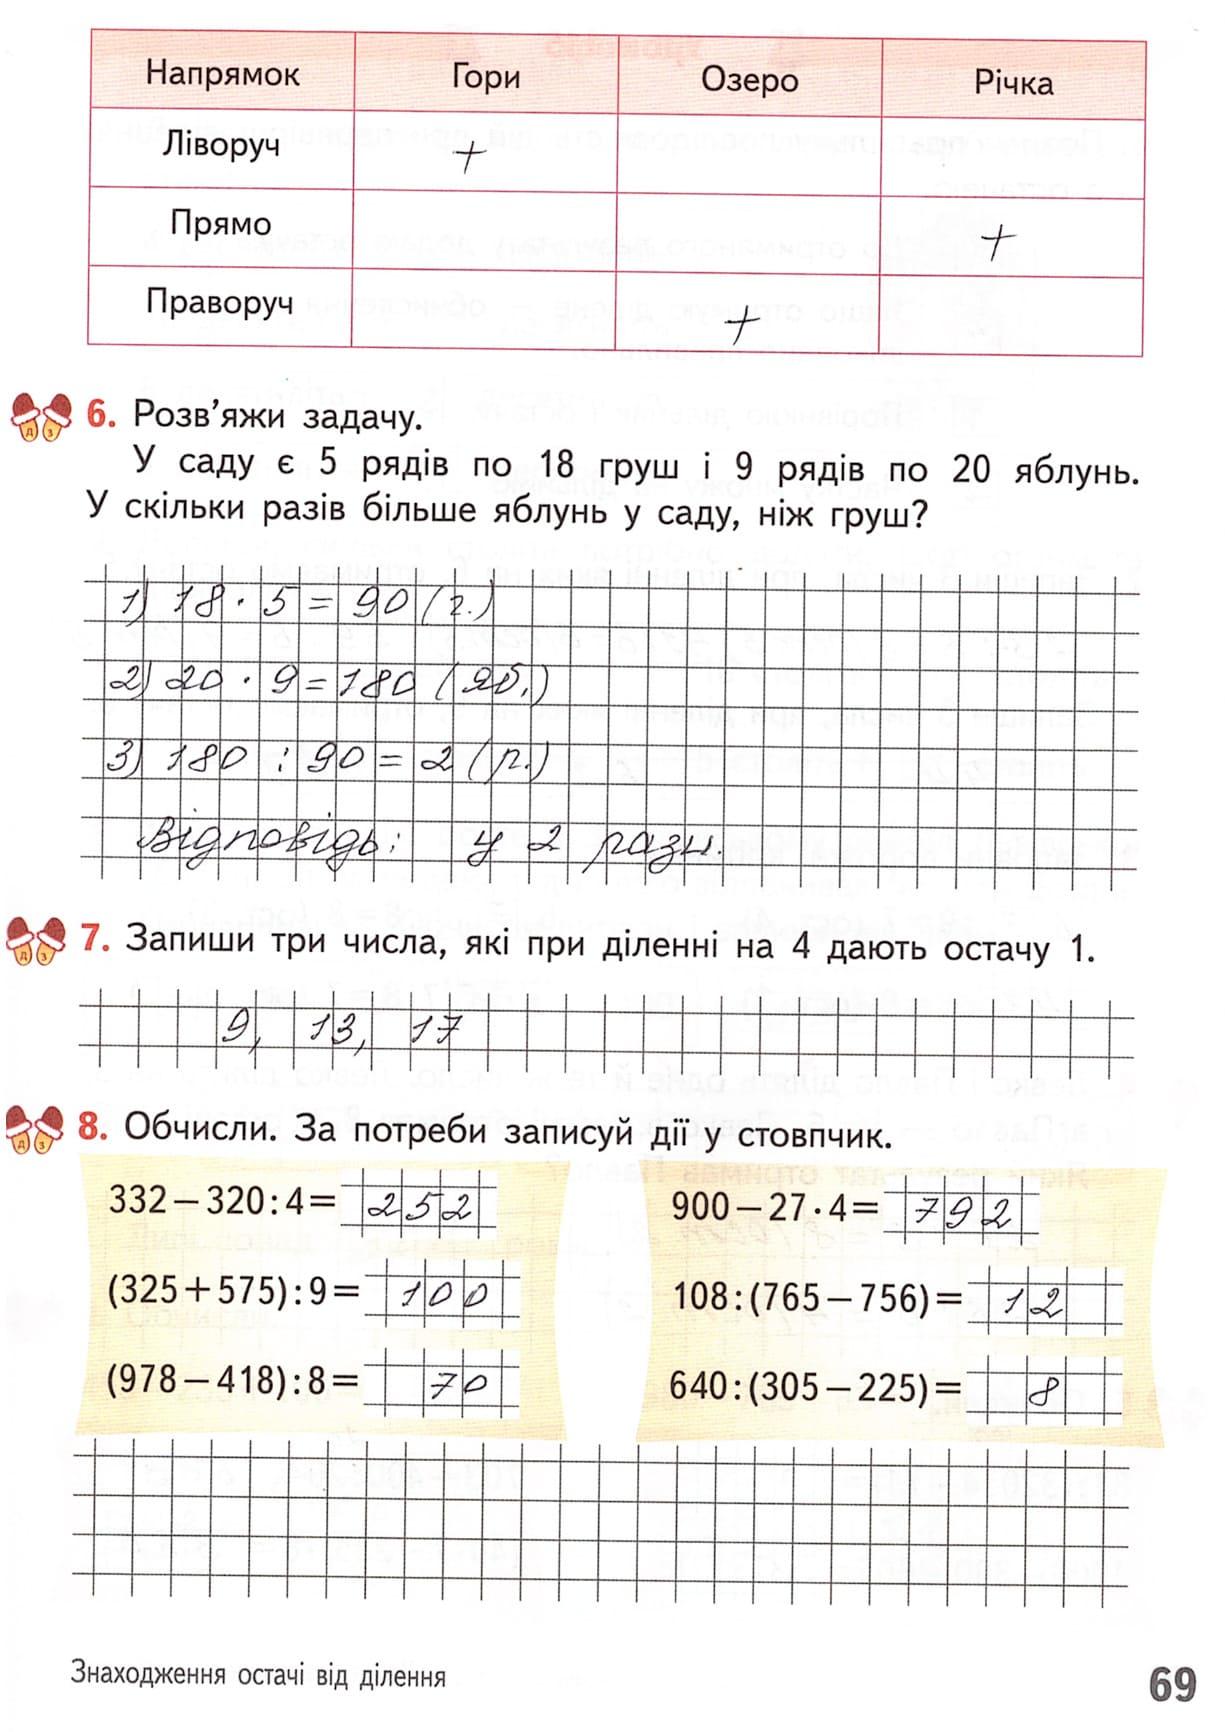 Напрямок Гори Озеро Річка
Ліворуч +
Прямо +
Праворуч +
6. Розв’яжи задачу.
У саду є 5 рядів по 18 груш і 9 рядів по 20 яблунь.
У скільки разів більше яблунь у саду, ніж груш?
1) 18 · 5 = 90 (г.)
2) 20 · 9 = 180 (яб.)
3) 180 : 90 = 2 (р.)
Відповідь: у 2 рази.
7. Запиши три числа, які при діленні на 4 дають остачу 1.
9, 13, 17
8. Обчисли. За потреби записуй дії у стовпчик.
332 – 320 : 4 = 252 900 – 27 · 4 = 792
(325 + 575) : 9 = 100 108 : (765 – 756) = 12
(978 – 418) : 8 = 70 640 : (305 – 225) = 8
Знаходження остачі від ділення 69